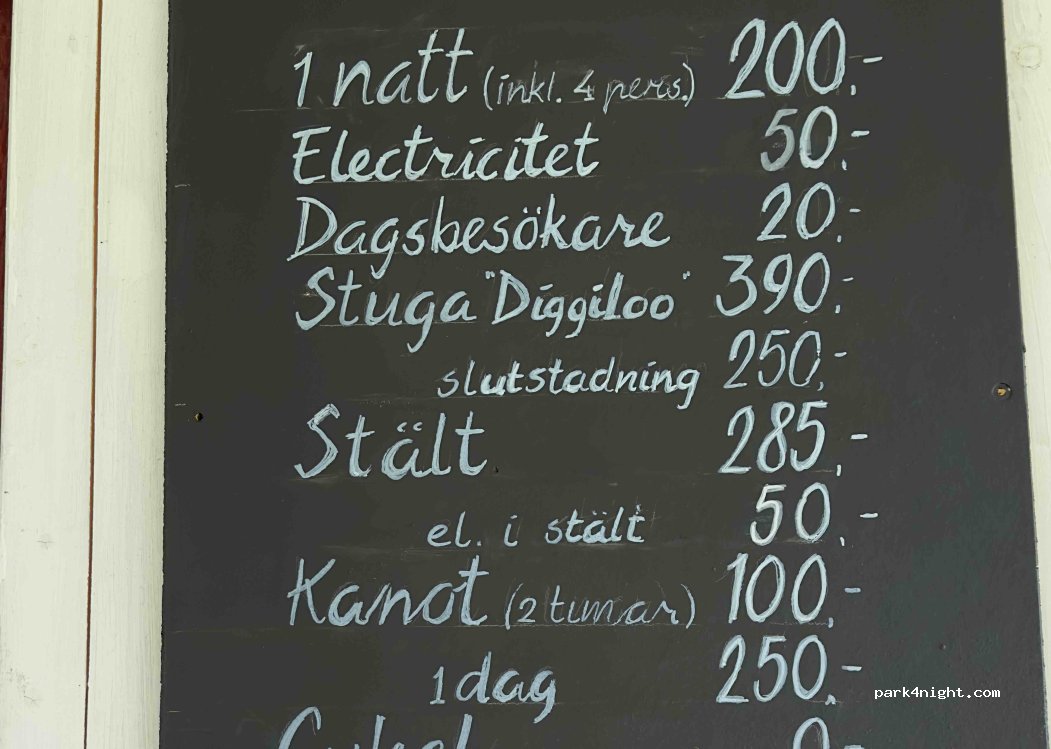 1 natt (inkl. 4 pers.) 200:-
Electricitet 50:-
Dagsbesökare 20:-
Stuga "Diggiloo" 390:-
slutstadning 250:-
Stält 285:-
el. i stält 50:-
Kanot (2 timar) 100:-
1 dag 250:-
park4night.com